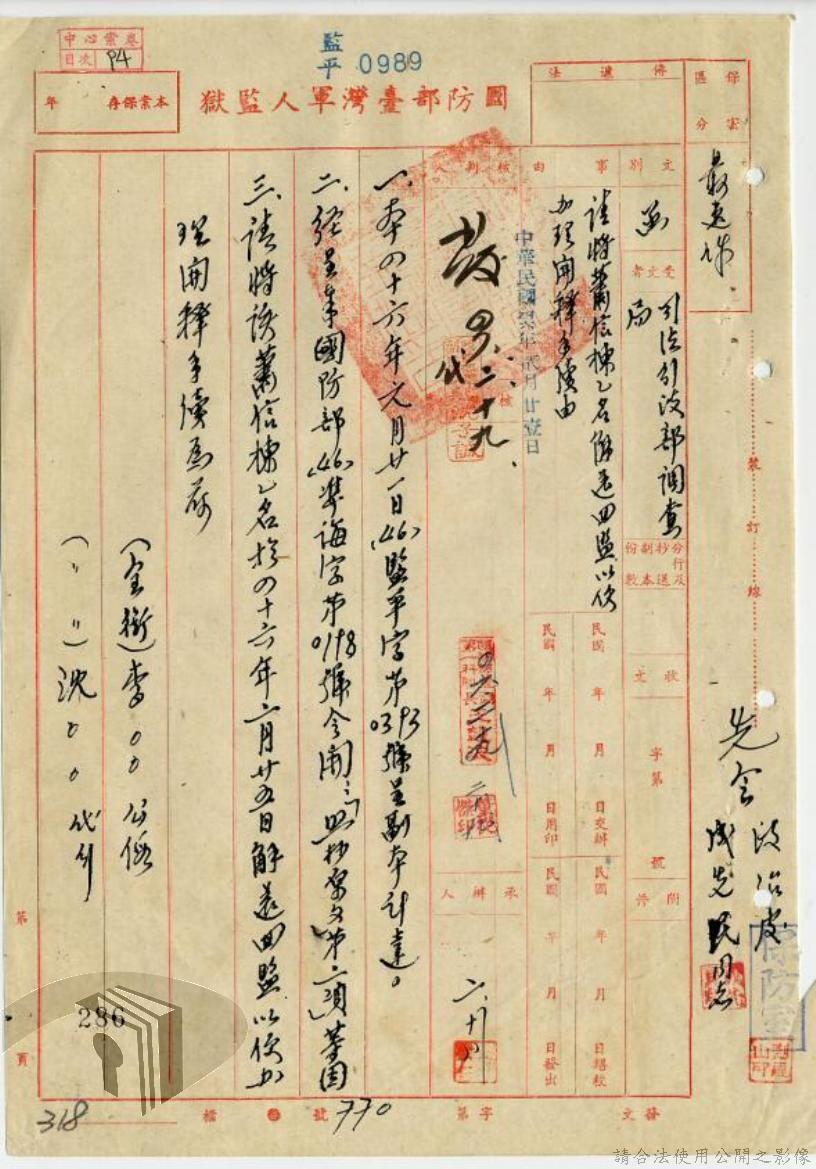 中心案卷
目次 P4
監平 0989
國防部臺灣軍人監獄
本案保存 年
傳遞法
保密區分
最速件
文別 函
受文者 司法行政部調查局
事由 請將蕭信棟乙名解還回監以便办理開釋手續由
中華民國 年 月廿壹日
核判人
四六、二、十九、
代
一、本四十六年元月廿一日(46)監平字第0393號呈副本計達。
二、經呈奉國防部(46)準海字第0198號令開:「照抄原文第二項」等因
三、請將該蕭信棟乙名於四十六年二月廿五日解還回監以便办
理開釋手續為荷
(全銜)李○○ 公假
(〃〃)沈○○ 代行
分行及抄送副本份數
收文 字第 號
附件
民國 年 月 日交辦
民國 年 月 日用印
民國 年 月 日繕校
民國 年 月 日發出
承辦人
二、十八
裝訂線
先會政治處
成先民同志
保防室
第 頁
286
318
發文 字第 770 號 檔
請合法使用公開之影像